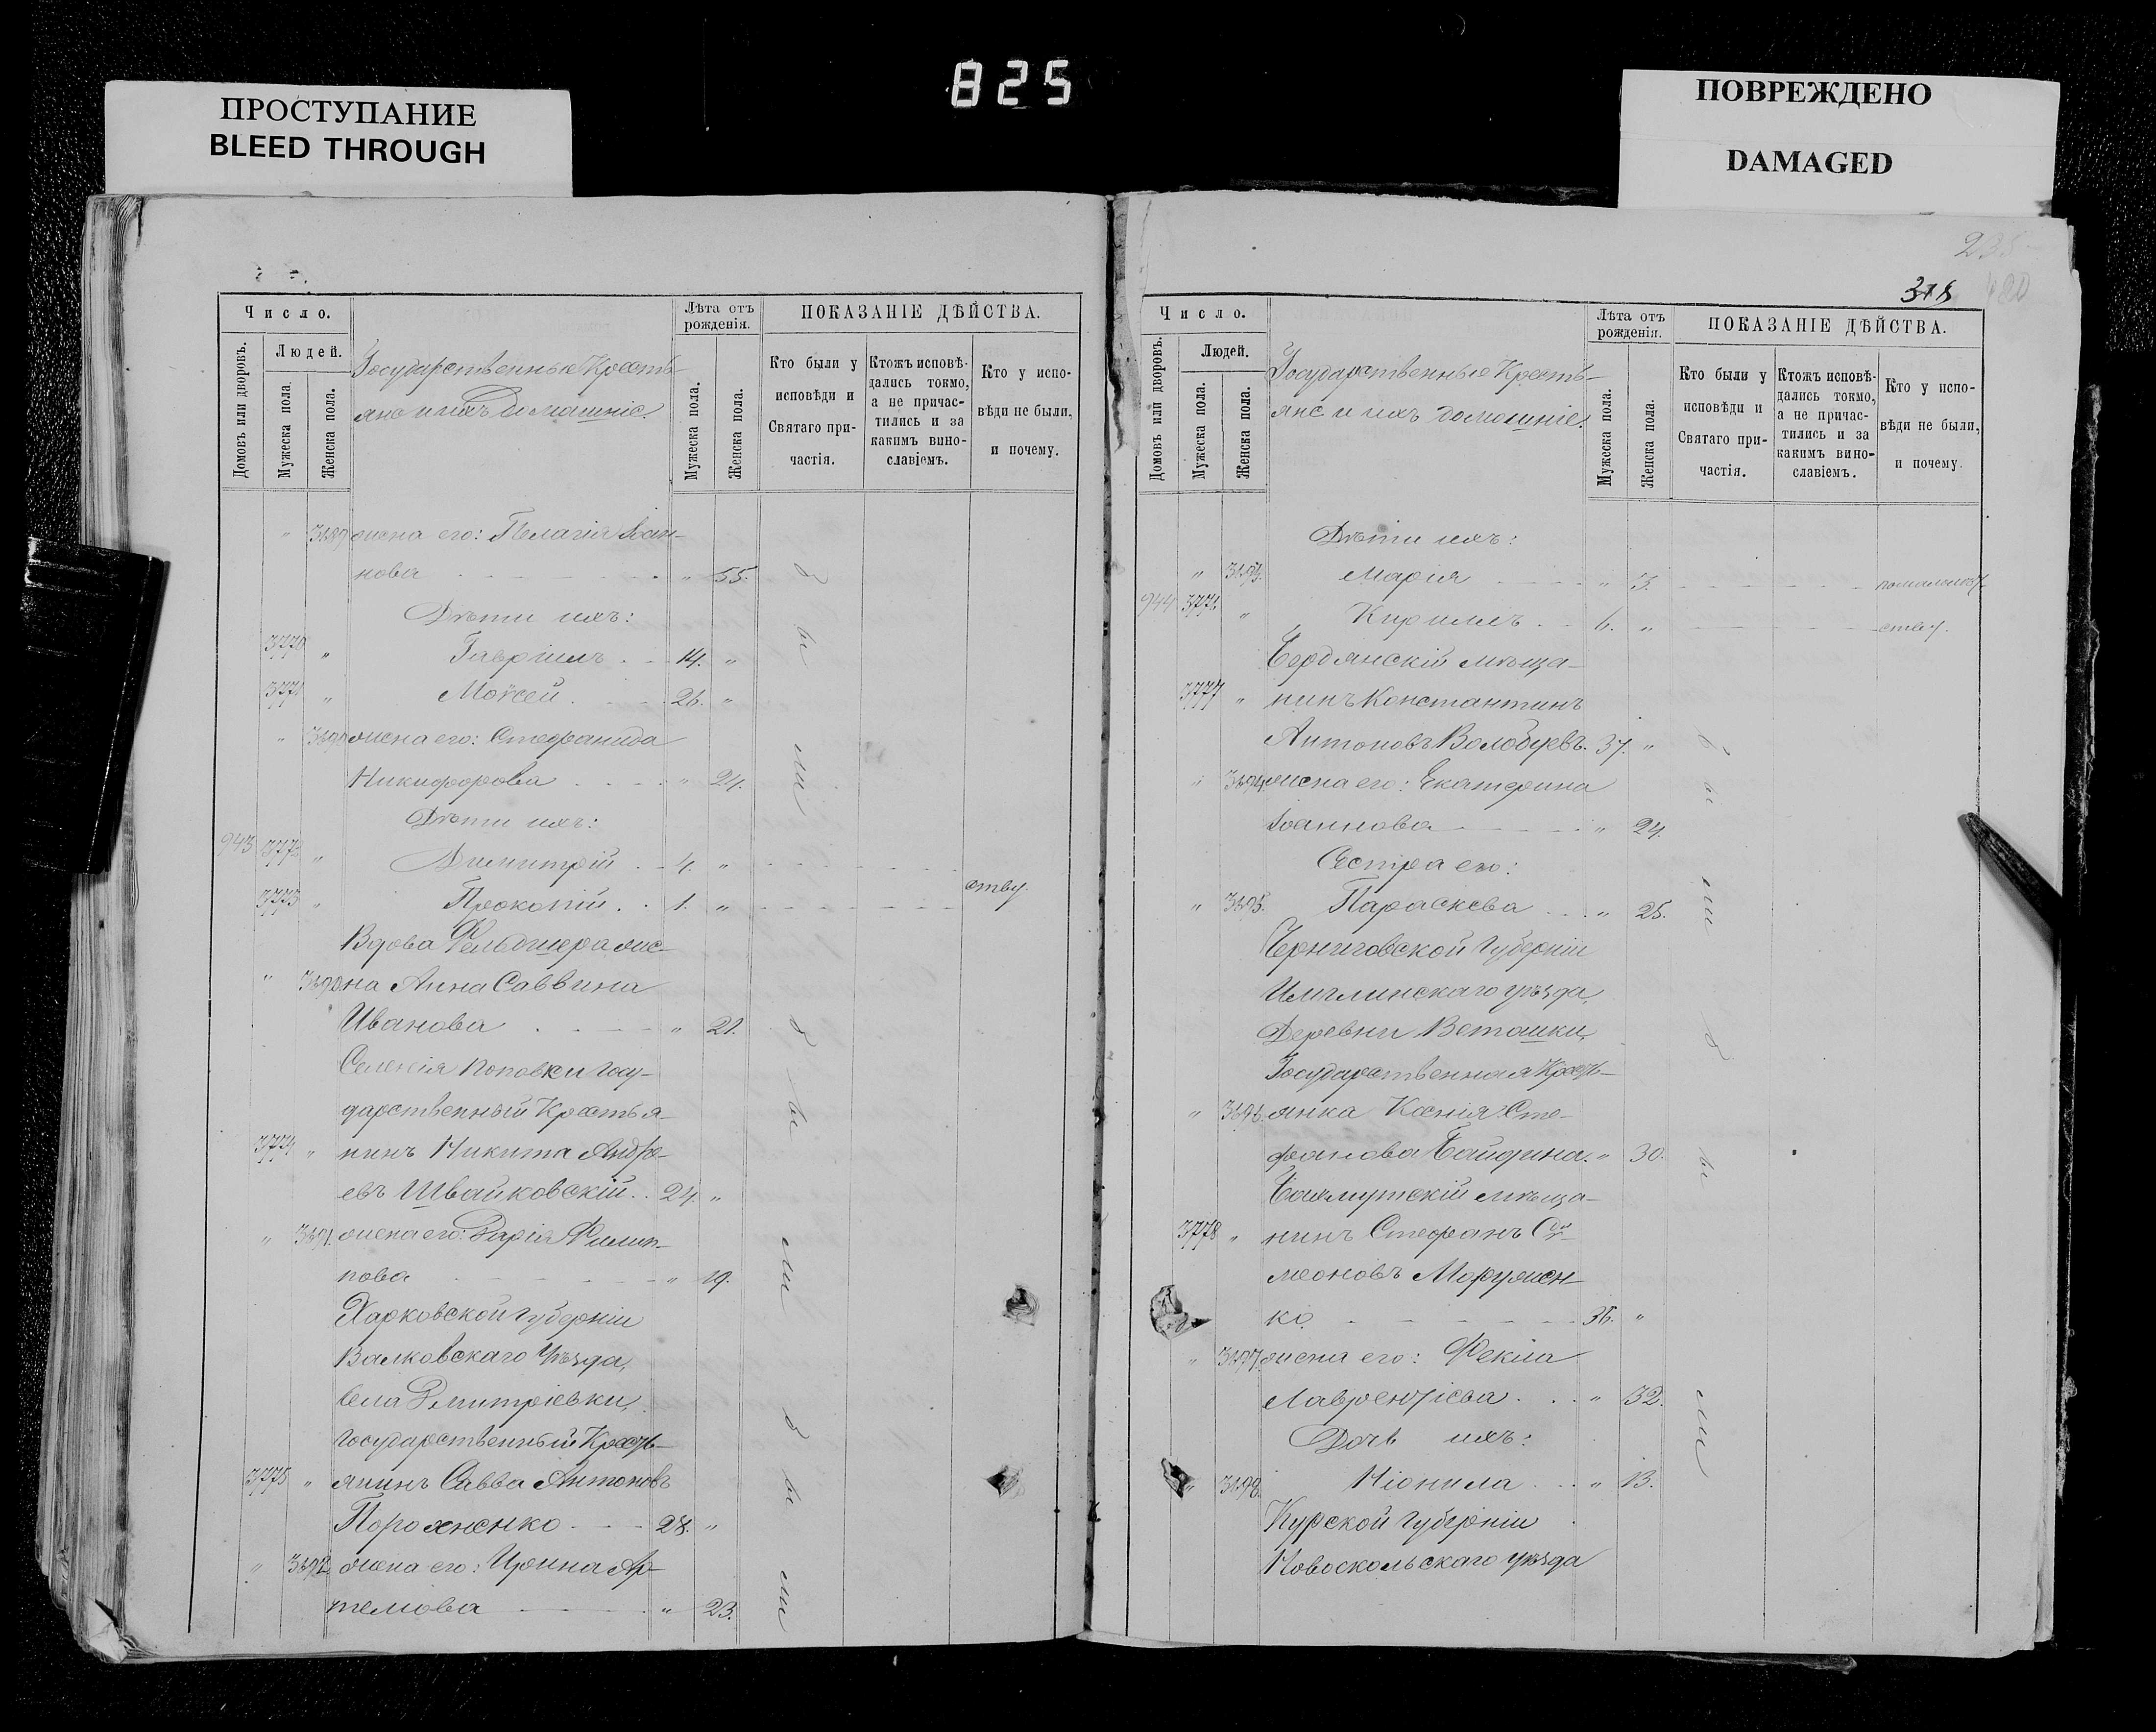 825
ПРОСТУПАНИЕ
BLEED THROUGH
ПОВРЕЖДЕНО
DAMAGED
Число.
Домовъ или дворовъ.
Людей.
Мужеска пола.
Женска пола.
Государственные Кресть-
яне и ихъ домашніе.
Лѣта отъ рожденія.
Мужеска пола.
Женска пола.
ПОКАЗАНІЕ ДѢЙСТВА.
Кто были у исповѣди и Святаго причастія.
Ктожъ исповѣдались токмо, а не причастились и за какимъ винославіемъ.
Кто у исповѣди не были, и почему.
" жена его: Пелагія Іоан-
нова " 55.
Дѣти ихъ:
3770 " Гавріилъ 14. "
3771 " Моѵсей 26. "
" жена его: Стефанида
Никифорова " 24.
Дѣти ихъ:
943 3772 " Димитрій 4. "
3773 " Прокопій 1. " ству.
Вдова Фельдшера же-
" 3690 на Анна Саввина
Иванова " 21.
Селенія Поповки Госу-
дарственный Крестья-
3774 " нинъ Никита Андре-
евъ Швайковскій 24 "
" 3691. жена его: Дарія Филип-
пова " 19.
Харковской Губерніи
Валковскаго Уѣзда,
Села Дмитріевки,
Государственный Кресть-
3775 " янинъ Савва Антоновъ
Порохненко 28. "
" 3692 жена его: Ирина Ар-
темова " 23.
были
были
были
318
Число.
Домовъ или дворовъ.
Людей.
Мужеска пола.
Женска пола.
Государственные Кресть-
яне и ихъ домашніе.
Лѣта отъ рожденія.
Мужеска пола.
Женска пола.
ПОКАЗАНІЕ ДѢЙСТВА.
Кто были у исповѣди и Святаго причастія.
Ктожъ исповѣдались токмо, а не причастились и за какимъ винославіемъ.
Кто у исповѣди не были, и почему.
Дѣти ихъ:
" 3693. Марія " 3.
944 3776 " Кириллъ 6. " ству.
Бердянскій мѣща-
3777 " нинъ Константинъ
Антоновъ Волобуевъ. 37. "
" 3694 жена его: Екатерина
Іоаннова " 24.
Сестра его:
" 3695. Параскева " 25.
Черниговской Губерніи
уѣзда,
Деревни
Государственная Кресть-
" 3696. янка Ксенія Сте-
фанова " 30.
Бахмутскій мѣща-
3778 " нинъ Стефанъ Си-
меоновъ
ко. 36. "
" 3697. жена его: Фекла
Лаврентіева " 32.
Дочь ихъ:
" 3698. Неонила " 13.
Курской Губерніи
Новоскольскаго уѣзда
были
были